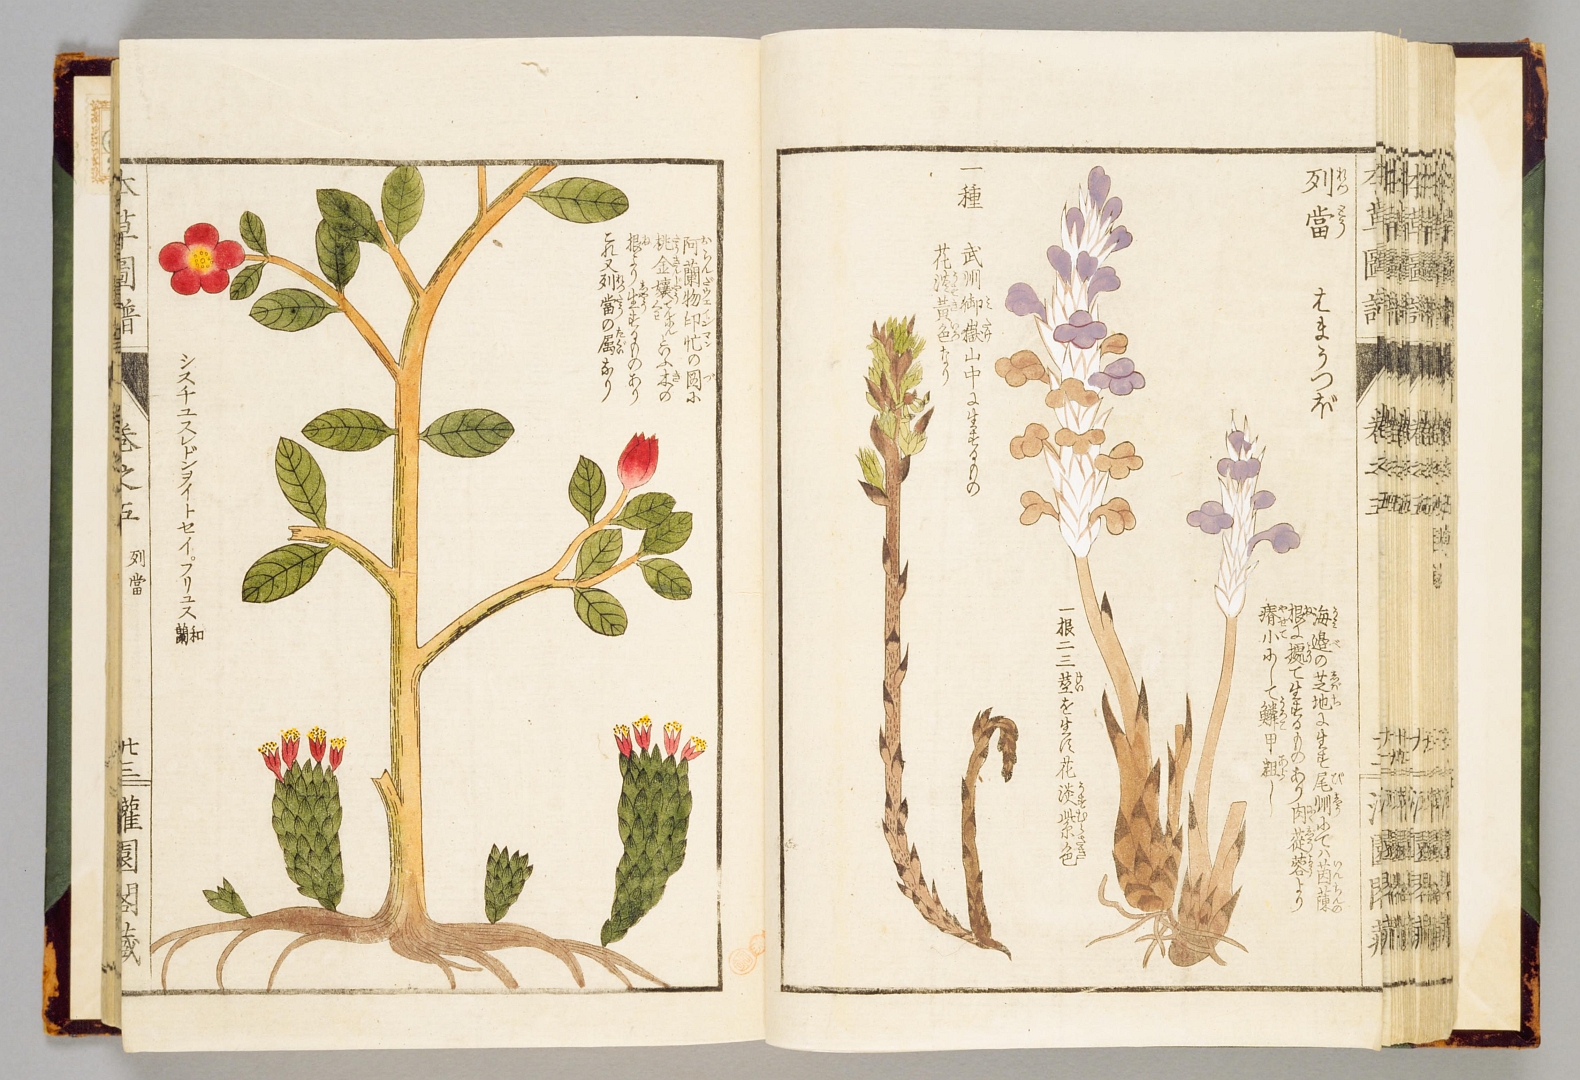 列當 はまうつぼ
海邉の芝地に生ず尾州にてハ茵蔯の
根に攙て生ずるものあり肉蓯蓉より
瘠小にして鱗甲粗し
一根二三莖を生ず花淡紫色
一種 武州御嶽山中に生ずるもの
花淡黄色なり
阿蘭物印忙の圖に
桃金孃といふ木の
根より生ずるものあり
これ又列當の屬なり
シスチュスレドンヨイトセイ。プリュス 和蘭
本草圖譜 卷之五 列當 廿三 灌園閣藏